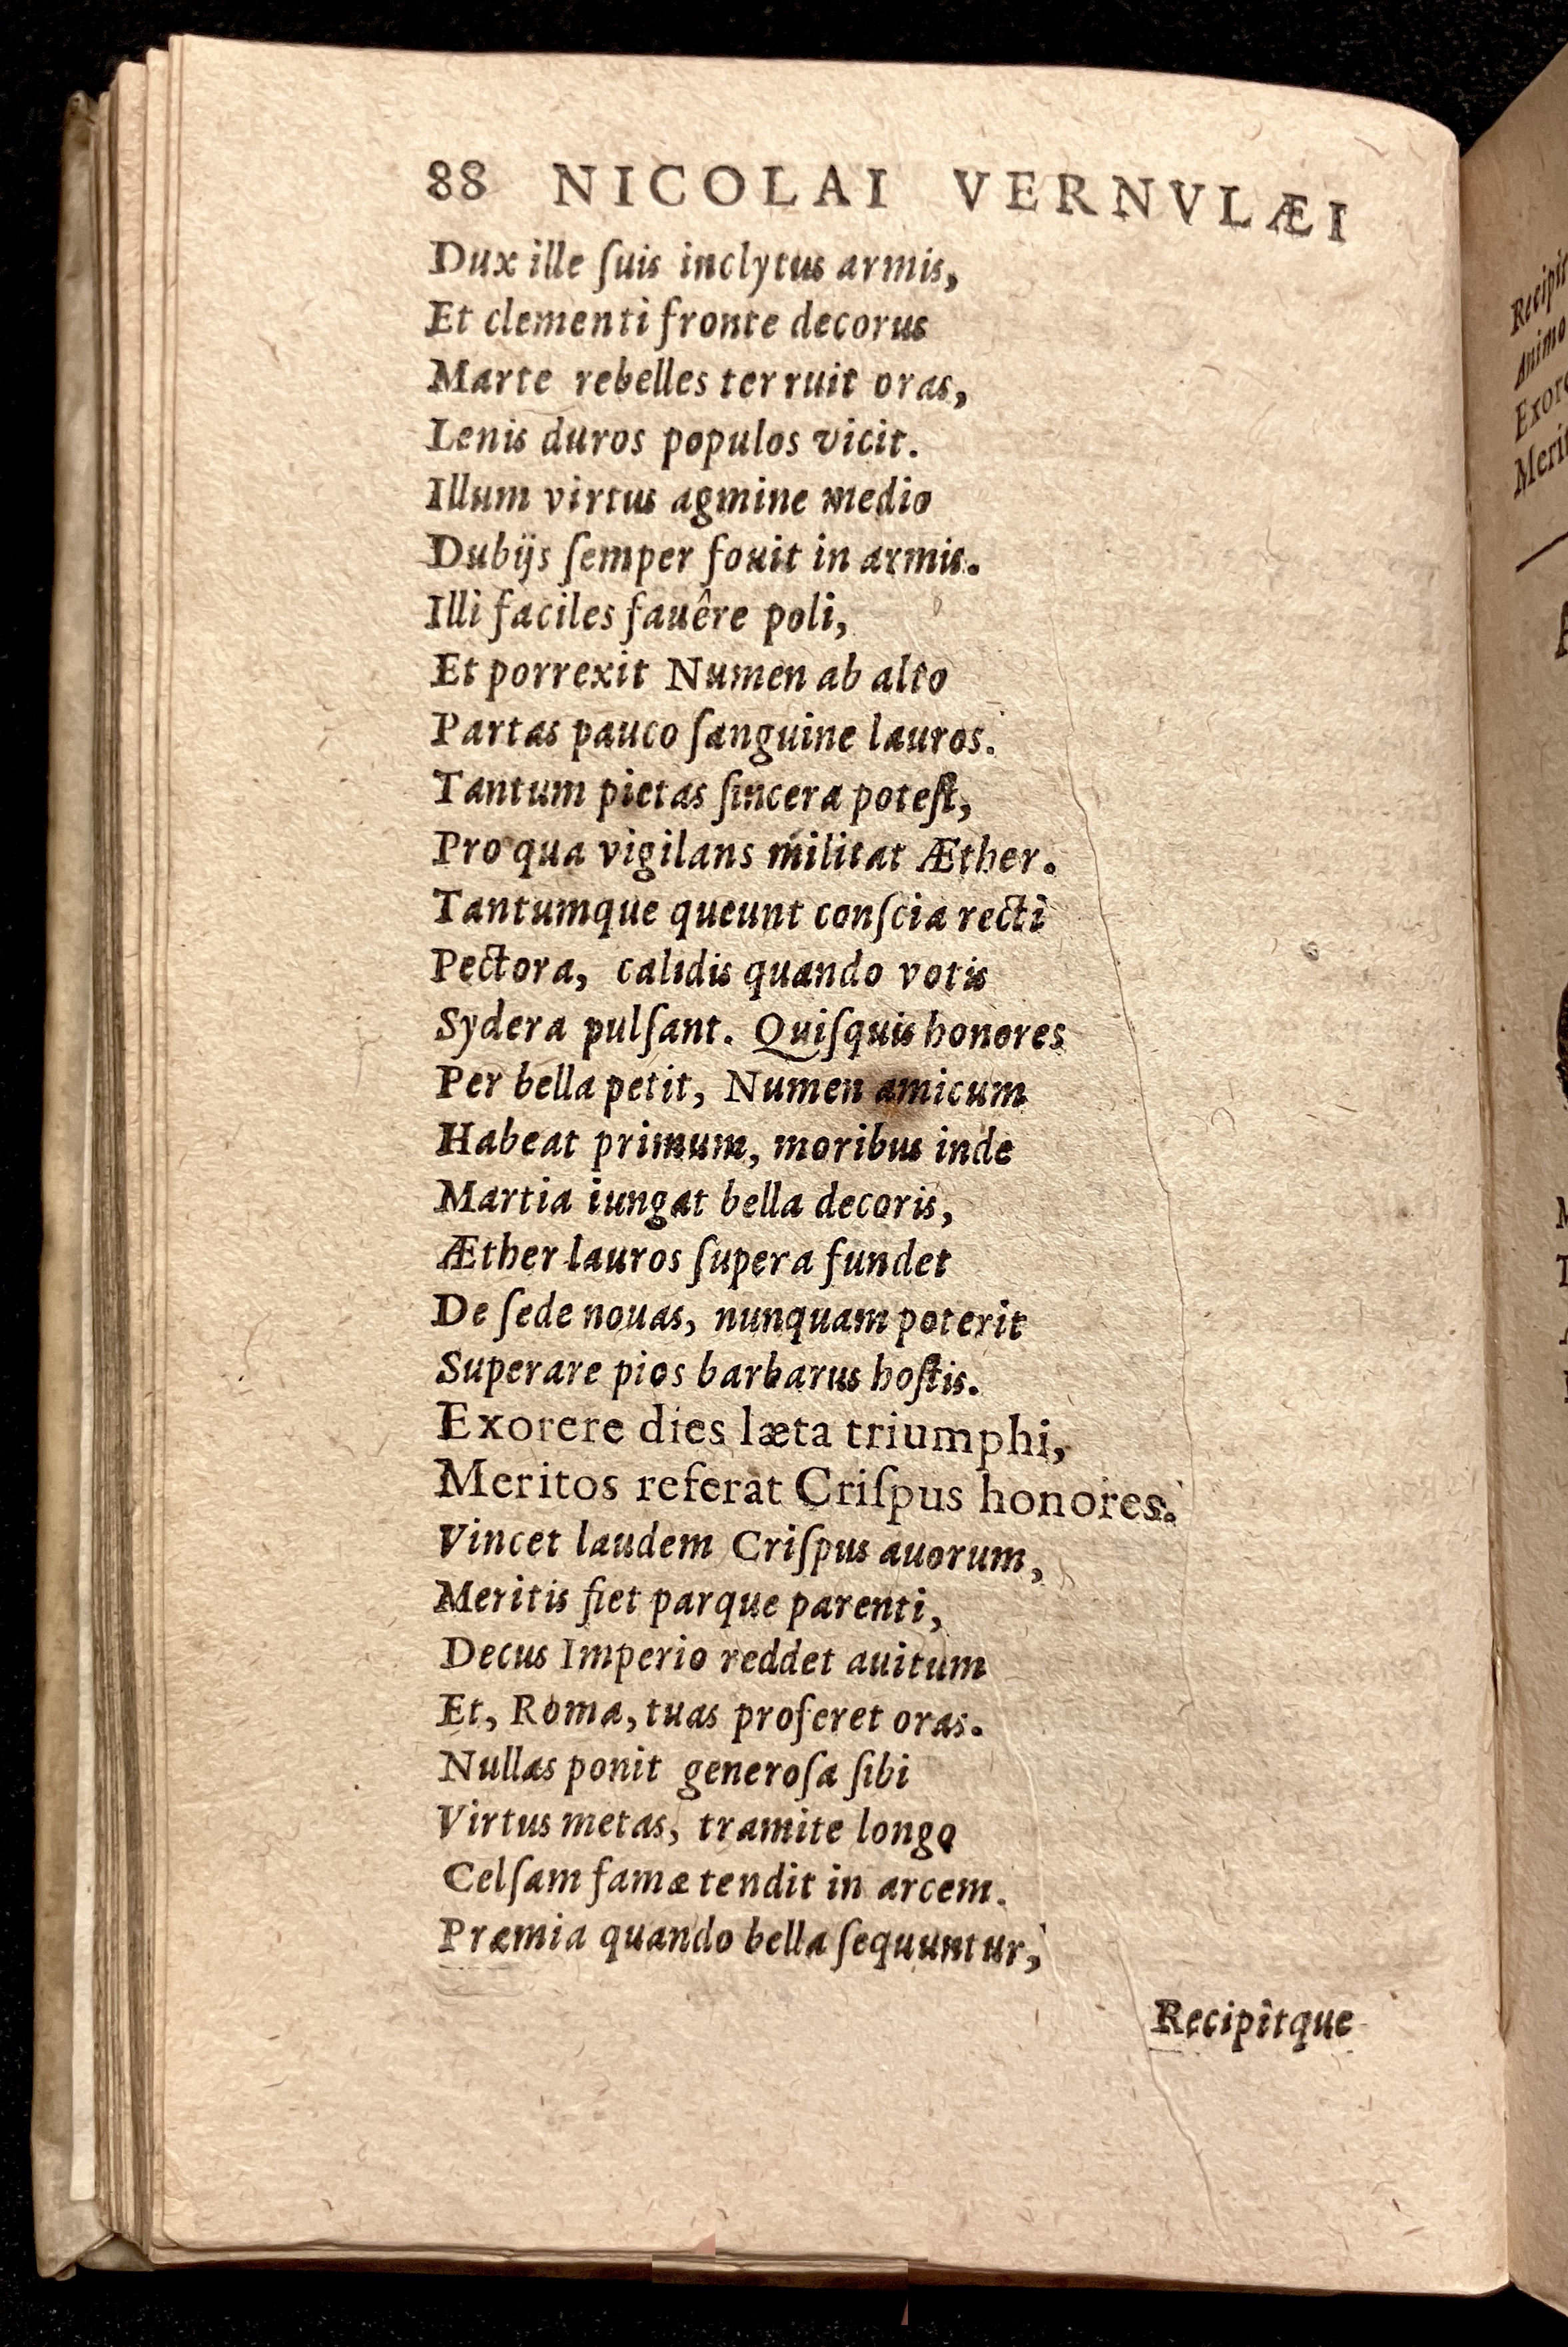 88 NICOLAI VERNVLÆI
Dux ille ſuis inclytus armis,
Et clementi fronte decorus
Marte rebelles terruit oras,
Lenis duros populos vicit.
Illum virtus agmine medio
Dubijs ſemper fouit in armis.
Illi faciles fauêre poli,
Et porrexit Numen ab alto
Partas pauco ſanguine lauros.
Tantum pietas ſincera poteſt,
Pro qua vigilans militat Æther.
Tantumque queunt conſcia recti
Pectora, calidis quando votis
Sydera pulſant. Quiſquis honores
Per bella petit, Numen amicum
Habeat primum, moribus inde
Martia iungat bella decoris,
Æther lauros ſupera fundet
De ſede nouas, nunquam poterit
Superare pios barbarus hoſtis.
Exorere dies læta triumphi,
Meritos referat Criſpus honores.
Vincet laudem Criſpus auorum,
Meritis fiet parque parenti,
Decus Imperio reddet auitum
Et, Roma, tuas proferet oras.
Nullas ponit generoſa ſibi
Virtus metas, tramite longo
Celſam famæ tendit in arcem.
Præmia quando bella ſequuntur,
Recipitque
Recipit
Animo
Exor
Meri